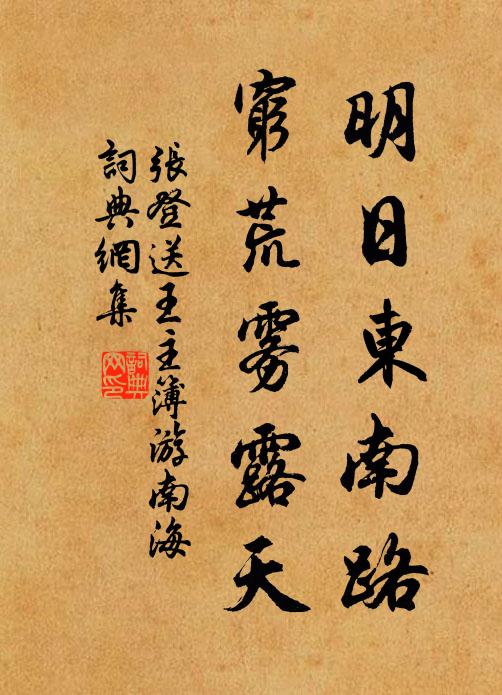 明日東南路
窮荒雾露天
張登送王主簿游南海
詞典網集
詞典網印